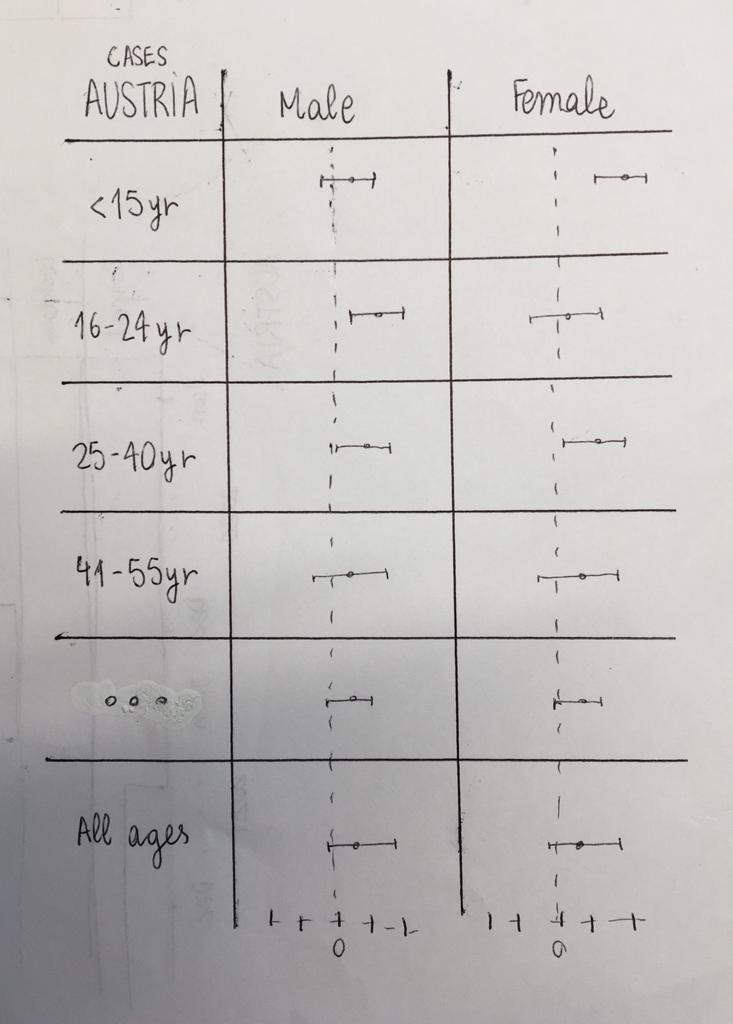 CASES
AUSTRIA
Male
Female
<15yr
16-24yr
25-40yr
41-55yr
All ages
0
0